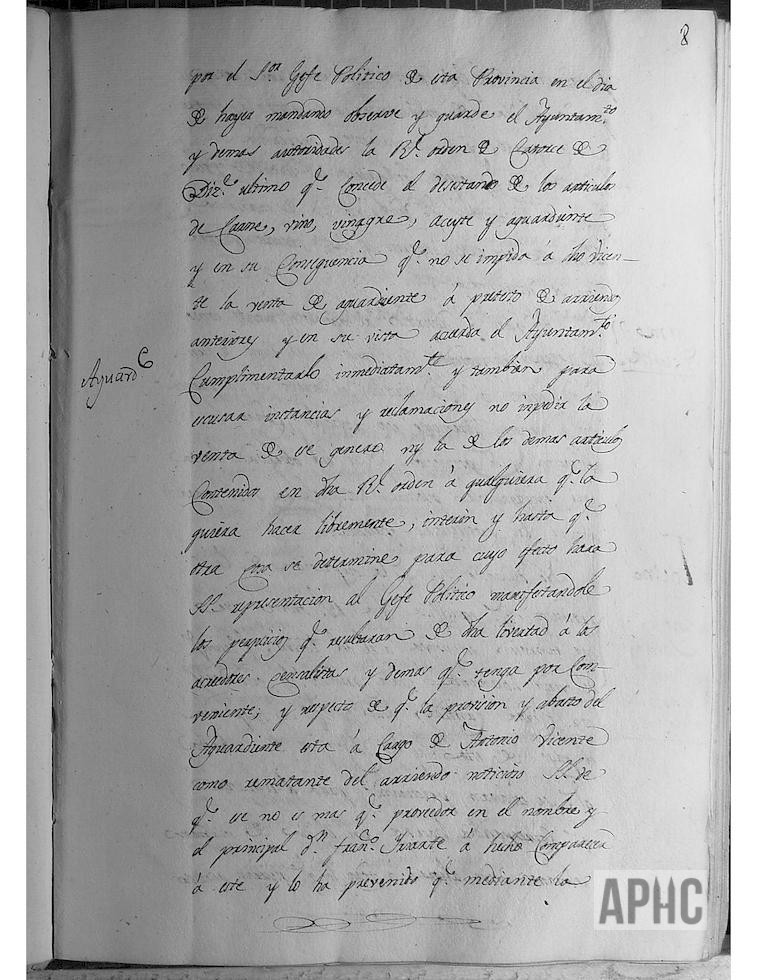 8
por el S.or Gefe Politico de esta Provincia en el dia
de hayer mandando observe y guarde el Ayuntam.to
y demas autoridades la R.l orden de Catorce de
Diz.e ultimo q.e Concede el desestanco de los articulos
de Carne, vino, vinagre, Aceyte y aguardiente
y en su Consequencia q.e no se impida á dho Vicen-
te la venta de aguardiente á pretesto de arriendos
anteriores y en su vista acuerda el Ayuntam.to
Aguard.e
Cumplimentarlo inmediatam.te y tambien para
escusar instancias y reclamaciones no inpedir la
venta de ese genero ny la de los demas articulos
Contenidos en dha R.l orden á qualquiera q.e la
quiera hacer libremente, interin y hasta q.e
otra cosa se determine para cuyo efecto hara
representacion al Gefe Politico manifestandole
los perjuicios q.e resultaran de dha livertad á los
acredores Censalistas y demas q.e tenga por Con-
veniente; y respecto de q.e la provision y abasto del
Aguardiente esta á Cargo de Antonio Vicente
como rematante del arriendo noticioso de
q.e ese no es mas q.e proveedor en el nombre y
el principal d.n Fran.co Iriarte á hecho Comparecer
á este y lo ha prevenido q.e mediante la
APHC